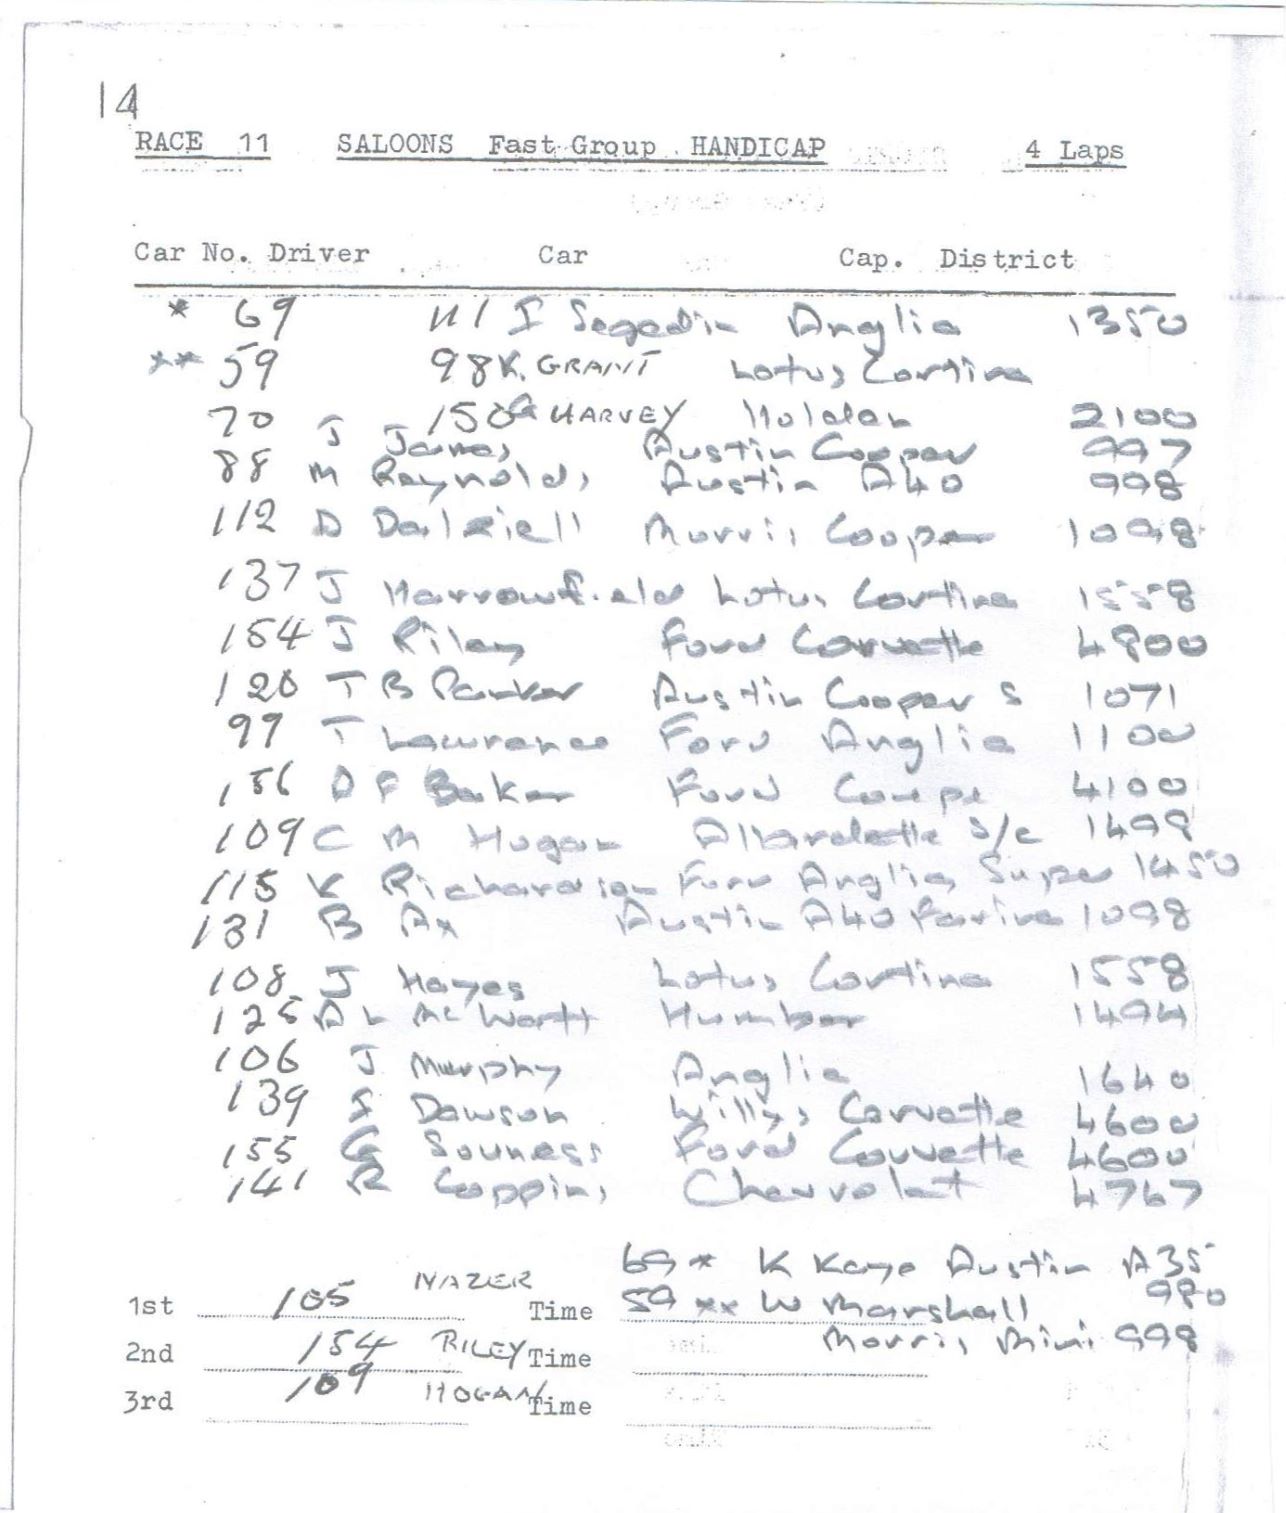 14
RACE 11 SALOONS Fast Group HANDICAP 4 Laps
Car No. Driver Car Cap. District
* 69 111 I Segedin Anglia 1350
** 59 98 K. GRANT Lotus Cortina
70 150 G HARVEY Holden 2100
J James Austin Cooper 997
88 M Reynolds Austin A40 998
112 D Dalziell Morris Cooper 1098
137 J Harrowfield Lotus Cortina 1558
154 J Riley Ford Corvette 4800
120 T B Parker Austin Cooper S 1071
99 T Lawrence Ford Anglia 1100
156 D F Baker Ford Coupe 4100
109 C M Hogan Allardette S/c 1498
115 K Richardson Ford Anglia Super 1450
131 B Ax Austin A40 Farina 1098
108 J Hayes Lotus Cortina 1558
125 A L McWortt Humber 1494
106 J Murphy Anglia 1640
139 S Dawson Willys Corvette 4600
155 G Souness Ford Corvette 4600
141 R Coppins Chevrolet 4767
69 * K Kaye Austin A35
980
1st 105 NAZER Time 59 ** W Marshall
Morris Mini 998
2nd 154 RILEY Time
3rd 109 HOGAN Time